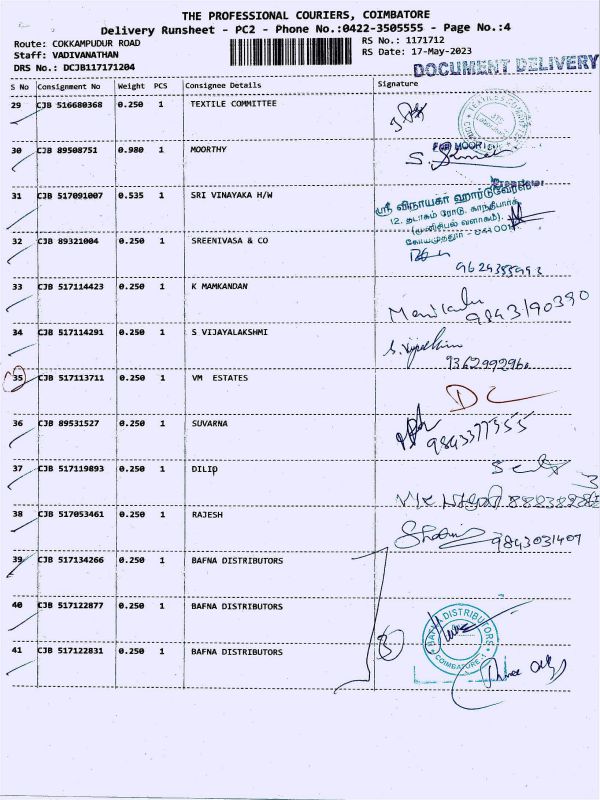 THE PROFESSIONAL COURIERS, COIMBATORE
Delivery Runsheet - PC2 - Phone No.:0422-3505555 - Page No.:4
Route: COKKAMPUDUR ROAD
RS No.: 1171712
Staff: VADIVANATHAN
RS Date: 17-May-2023
DRS No.: DCJB117171204
DOCUMENT DELIVERY
S No Consignment No Weight PCS Consignee Details Signature
29 CJB 516680368 0.250 1 TEXTILE COMMITTEE
30 CJB 89508751 0.980 1 MOORTHY
31 CJB 517091007 0.535 1 SRI VINAYAKA H/W
ஸ்ரீ விநாயகா ஹார்டுவேர்ஸ்
12, தடாகம் ரோடு, காந்திபார்க்
(முனிசிபல் வளாகம்),
32 CJB 89321004 0.250 1 SREENIVASA & CO
33 CJB 517114423 0.250 1 K MAMKANDAN
9843190390
34 CJB 517114291 0.250 1 S VIJAYALAKSHMI
35 CJB 517113711 0.250 1 VM ESTATES
DC
36 CJB 89531527 0.250 1 SUVARNA
9843377355
37 CJB 517119893 0.250 1 DILIP
38 CJB 517053461 0.250 1 RAJESH
9843031407
39 CJB 517134266 0.250 1 BAFNA DISTRIBUTORS
40 CJB 517122877 0.250 1 BAFNA DISTRIBUTORS
BAFNA DISTRIBUTORS
COIMBATORE
3
41 CJB 517122831 0.250 1 BAFNA DISTRIBUTORS